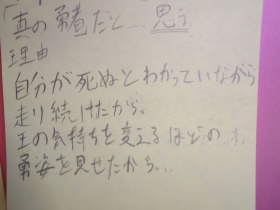 真の勇者だと…思う。
理由
自分が死ぬとわかっていながら
走り続けたから。
王の気持ちを変えるほどの
勇姿を見せたから…